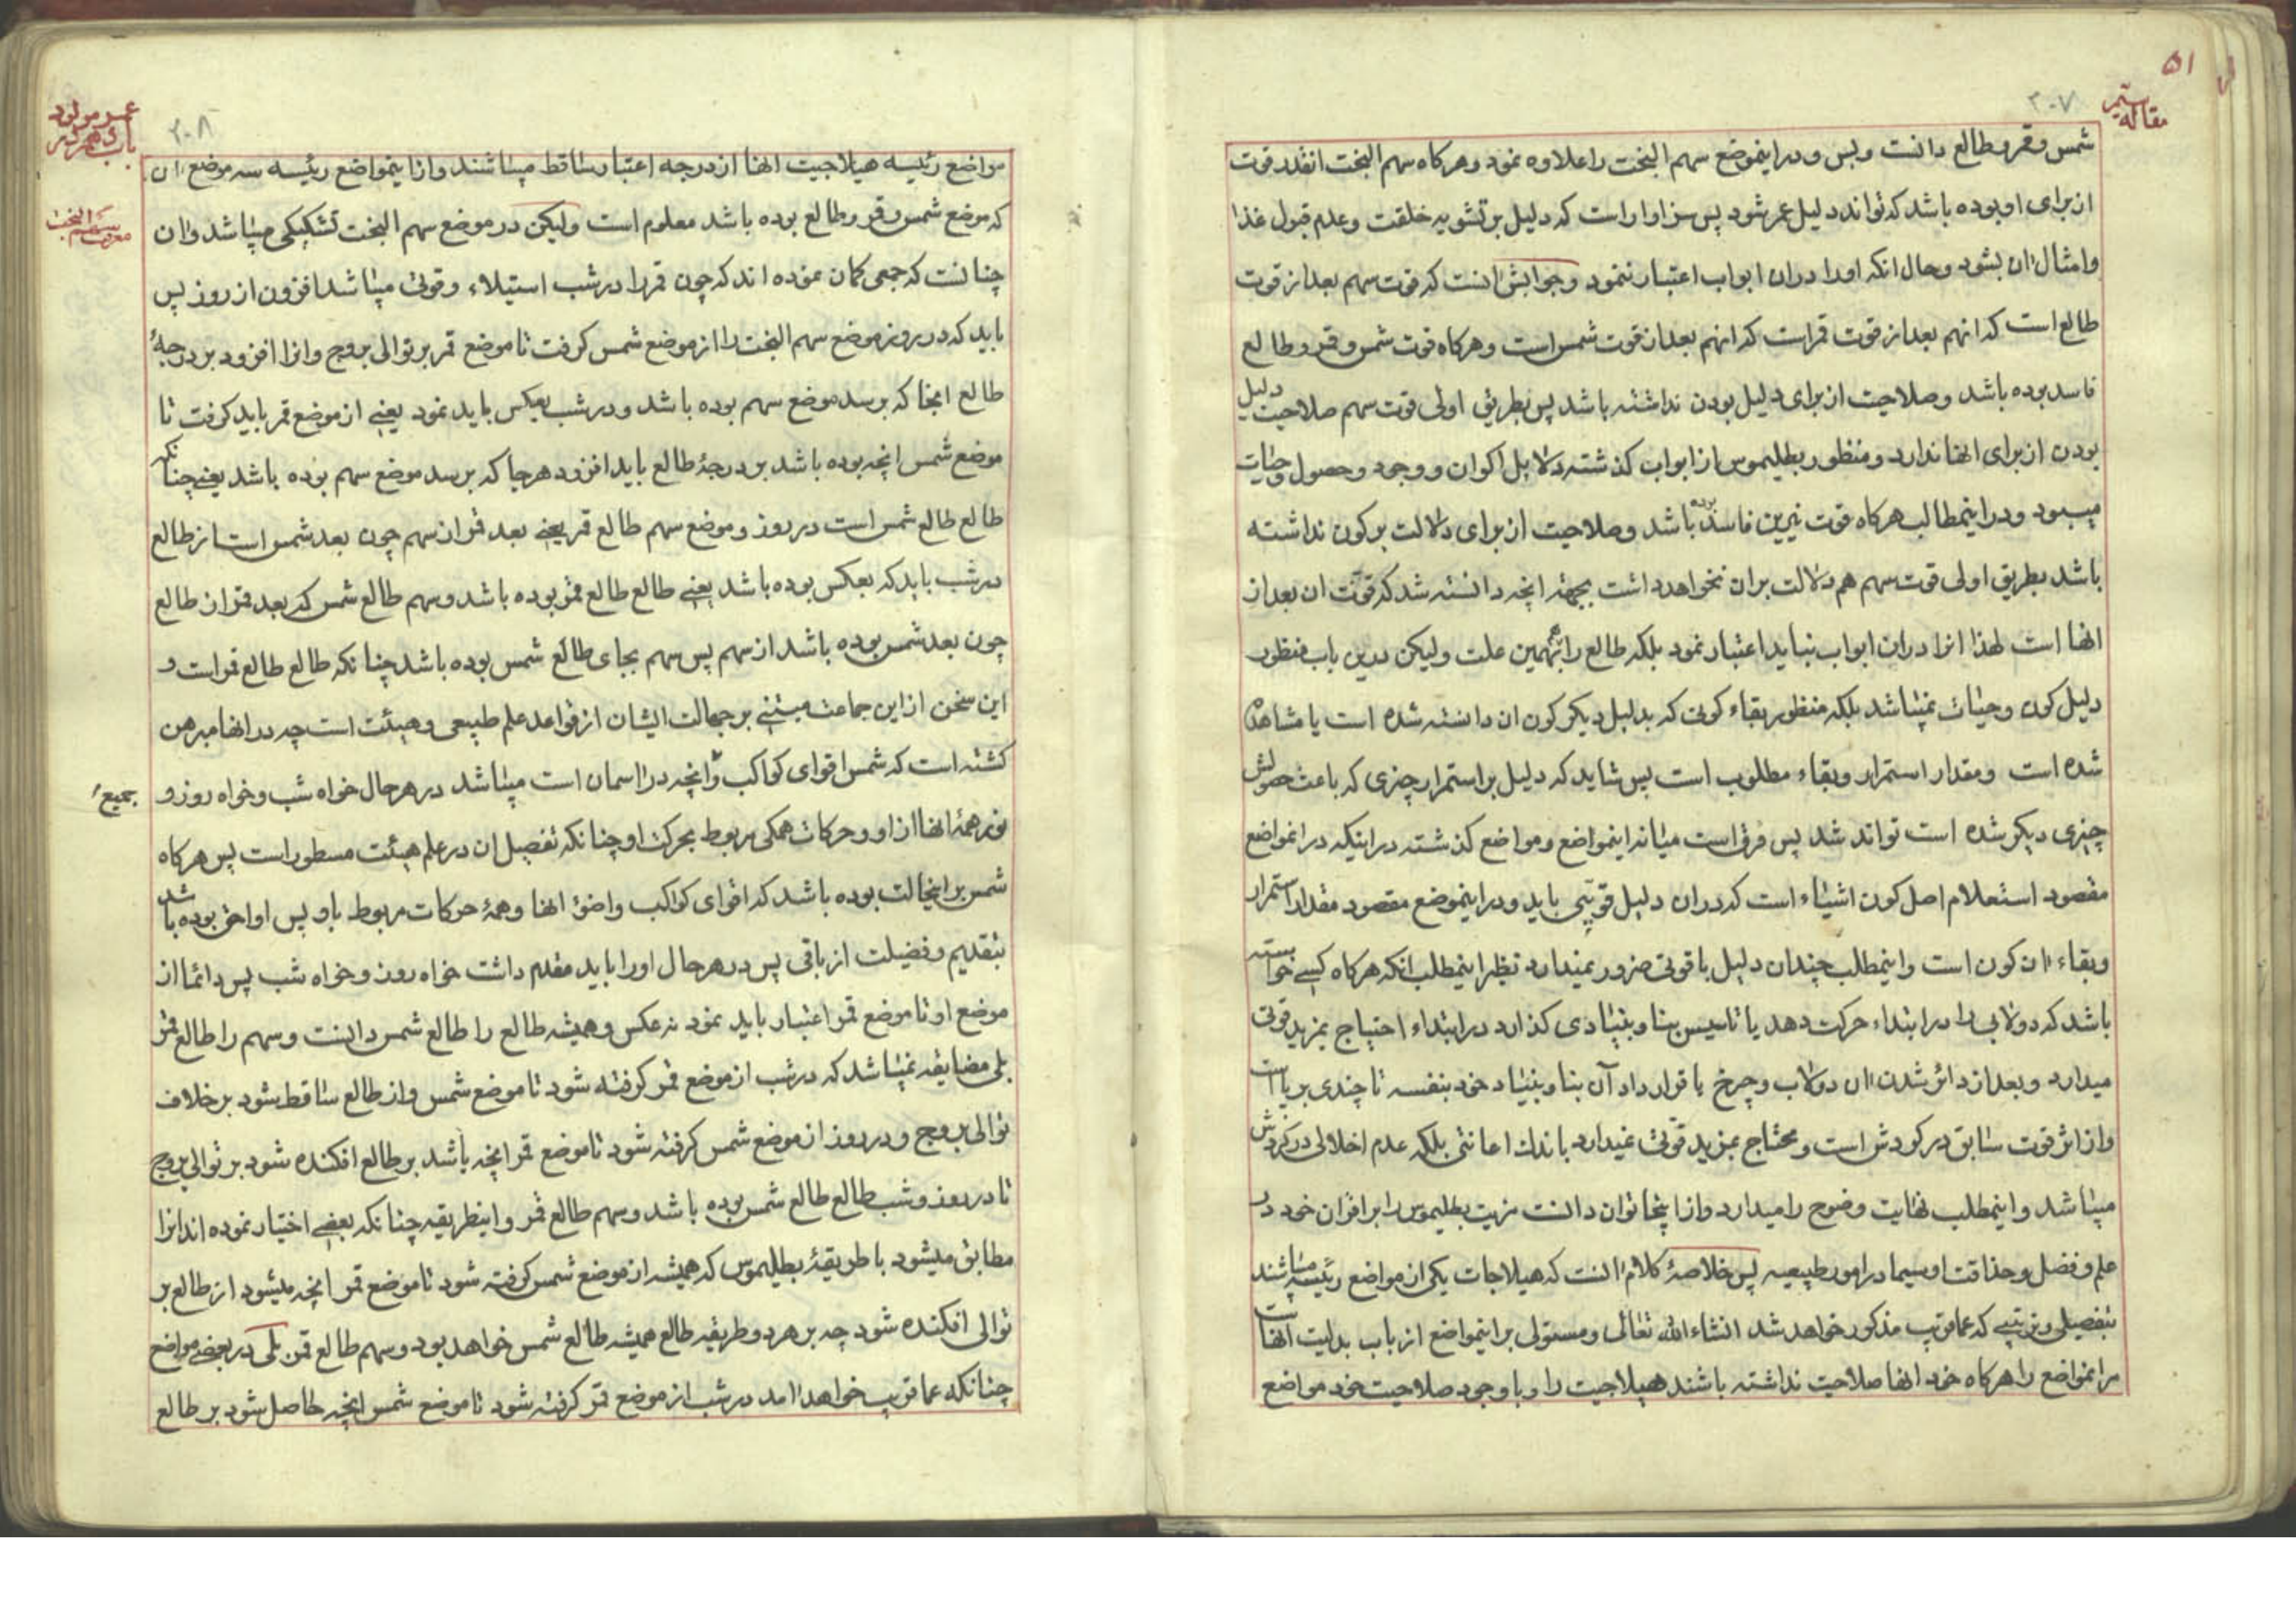 ۵۱
مقاله سیم
۲۰۷
شمس و قمر و طالع دانست و بس و در اینموضع سهم البخت را علاوه نمود و هرکاه سهم البخت انقدر قوت
از برای او بوده باشد که تواند دلیل عمر شود پس سزاوار است که دلیل بر تشویه خلقت و عدم قبول غذا
و امثال ان بشود و حال انکه او را در ان ابواب اعتبار ننمود و جوابش انست که قوت سهم بعد از قوت
طالع است که انهم بعد از قوت قمر است که انهم بعد از قوت شمس است و هرکاه قوت شمس و قمر و طالع
فاسد بوده باشد و صلاحیت از برای دلیل بودن نداشته باشد پس بطریق اولی قوت سهم صلاحیت دلیل
بودن از برای انها ندارد و منظور بطلیموس از ابواب کذشته دلایل اکوان و وجود و حصول و حیات
میبود و در اینمطالب هرکاه قوت نیرین فاسد بوده باشد و صلاحیت از برای دلالت بر کون نداشته
باشد بطریق اولی قوت سهم هم دلالت بران نخواهد داشت بجهة انچه دانسته شد که قوت ان بعد از
انها است لهذا انرا در ان ابواب نباید اعتبار نمود بلکه طالع را نیز بهمین علت ولیکن درین باب منظور
دلیل کون و حیات نمیباشد بلکه منظور بقاء کونی که بدلیل دیکر کون ان دانسته شده است یا مشاهده
شده است و مقدار استمرار و بقاء مطلوب است پس شاید که دلیل بر استمرار چیزی که باعث حصولش
چیزی دیکر شده است تواند شد پس فرق است میانه اینمواضع و مواضع کذشته در اینکه در انمواضع
مقصود استعلام اصل کون اشیاء است که در ان دلیل قویتی باید و در اینموضع مقصود مقدار استمرار
و بقاء ان کون است و اینمطلب چندان دلیل با قوتی ضرور نمیدارد نظیر اینمطلب انکه هرکاه کسی خواسته
باشد که دولابی را در ابتداء حرکت دهد یا تاسیس بنا و بنیادی کذارد در ابتداء احتیاج بمزید قوتی
میدارد و بعد از دائر شدن ان دولاب و چرخ یا قرار داد آن بنا و بنیاد خود بنفسه تا چندی برپا است
و از اثر قوت سابق در کردش است و محتاج بمزید قوتی نمیدارد باندک اعانتی بلکه عدم اخلالی در کردش
میباشد و اینمطلب نهایت وضوح را میدارد و از اینجا توان دانست مزیت بطلیموس را بر اقران خود در
علم و فضل و حذاقت او سیما در امور طبیعیه پس خلاصهٔ کلام انست که هیلاجات یکی از مواضع رئیسه میباشند
بتفصیلی و ترتیبی که عما قریب مذکور خواهد شد انشاء الله تعالی و مستولی بر اینمواضع از باب بدایت انهاست
مر انمواضع را هرکاه خود انها صلاحیت نداشته باشند هیلاجیت را و با وجود صلاحیت خود مواضع
عمر مولود
باب دهم
۲۰۸
معرفت سهم البخت
مواضع رئیسه هیلاجیت انها از درجه اعتبار ساقط میباشند و از اینمواضع رئیسه سه موضع ان
که موضع شمس و قمر و طالع بوده باشد معلوم است ولیکن در موضع سهم البخت تشکیکی میباشد و ان
چنانست که جمعی کمان نموده اند که چون قمر را در شب استیلاء و قوتی میباشد افزون از روز پس
باید که در روز موضع سهم البخت را از موضع شمس کرفت تا موضع قمر بر توالی بروج و انرا افزود بر درجهٔ
طالع انجا که برسد موضع سهم بوده باشد و در شب بعکس باید نمود یعنی از موضع قمر باید کرفت تا
موضع شمس انچه بوده باشد بر درجهٔ طالع باید افزود هر جا که برسد موضع سهم بوده باشد یعنی چنانکه
طالع طالع شمس است در روز و موضع سهم طالع قمر یعنی بعد قمر از سهم چون بعد شمس است از طالع
در شب باید که بعکس بوده باشد یعنی طالع طالع قمر بوده باشد و سهم طالع شمس که بعد قمر از طالع
چون بعد شمس بوده باشد از سهم پس سهم بجای طالع شمس بوده باشد چنانکه طالع طالع قمر است و
این سخن از این جماعت مبتنی بر جهالت ایشان از قواعد علم طبیعی و هیئت است چه در انها مبرهن
کشته است که شمس اقوای کواکب و انچه در اسمان است میباشد در هر حال خواه شب و خواه روز و جمیع
نور همهٔ انها از او و حرکات همکی مربوط بحرکت او چنانکه تفصیل ان در علم هیئت مسطور است پس هرکاه
شمس بر اینحالت بوده باشد که اقوای کواکب و اضوء انها و همهٔ حرکات مربوط باو پس او احق بوده باشد
بتقدیم و فضیلت از باقی پس در هر حال او را باید مقدم داشت خواه روز و خواه شب پس دائما از
موضع او تا موضع قمر اعتبار باید نمود نه عکس و همیشه طالع را طالع شمس دانست و سهم را طالع قمر
بلی مضایقه نمیباشد که در شب از موضع قمر کرفته شود تا موضع شمس و از طالع ساقط شود بر خلاف
توالی بروج و در روز از موضع شمس کرفته شود تا موضع قمر انچه باشد بر طالع افکنده شود بر توالی بروج
تا در روز و شب طالع طالع شمس بوده باشد و سهم طالع قمر و اینطریقه چنانکه بعضی اختیار نموده اند انرا
مطابق میشود با طریقهٔ بطلیموس که همیشه از موضع شمس کرفته شود تا موضع قمر انچه میشود از طالع بر
توالی افکنده شود چه بر هر دو طریقه طالع همیشه طالع شمس خواهد بود و سهم طالع قمر بلی در بعضی مواضع
چنانکه عما قریب خواهد امد در شب از موضع قمر کرفته شود تا موضع شمس انچه حاصل شود بر طالع